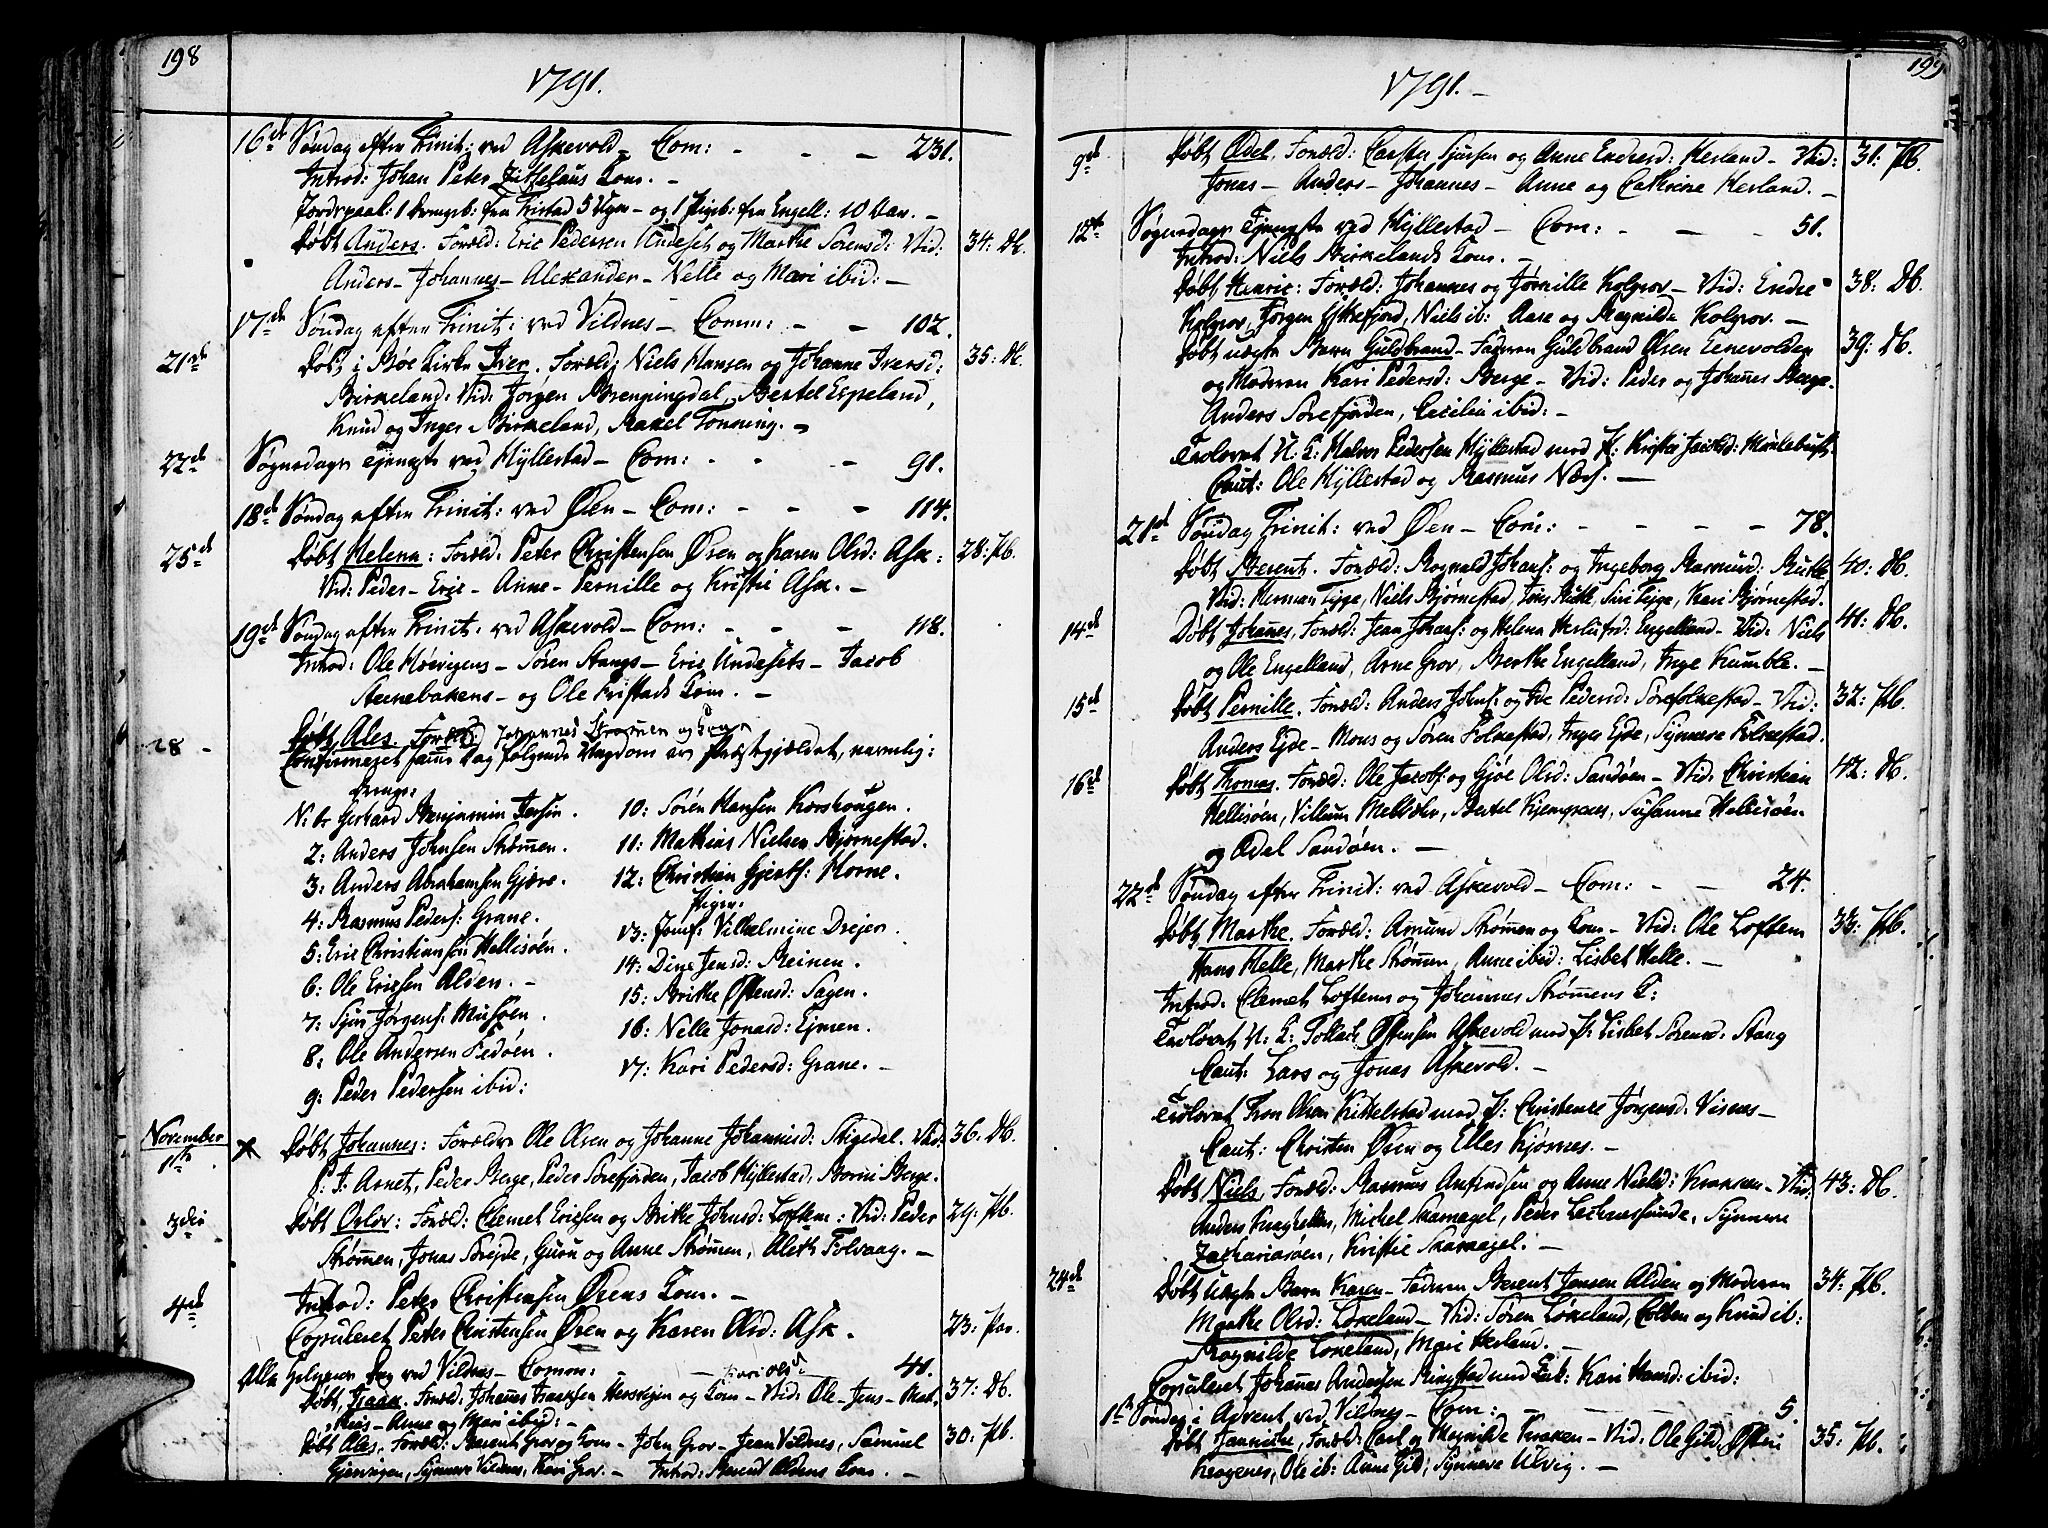 198
1791.
16de Søndag efter Trinit: ved Askevold – Com: - - - 231.
Introd: Johan Peter Kone. –
Jordspaak: 1 Drengeb: fra Fristad 5 Uger – og 1 Pigeb: fra Engell: 10 Dar. –
Døbt Anders. Foræld: Eric Pedersen Undeset og Marthe Sørensd: Vid: 34: Db.
Anders – Johannes – Alexander – Nelle og Mari ibid: –
17de Søndag efter Trinit: ved Vildnes – Comm: - - 102.
21de Døbt i Bøe Kirke Iver. Foræld: Niels Hansen og Johanne Iversd: 35: Db.
Birkeland. Vid: Jørgen Brenpingdal, Bertel Espeland,
Knud og Inger Birkeland, Rakel Tonning. –
22de Søgnedags Tjeneste ved Hyllestad – Com: - - - 91.
18de Søndag efter Trinit: ved Øen – Com: - - - 114.
25de Døbt Helena: Foræld: Peter Christensen Øren og Karen Olsd: Ask: 28: Pb.
Vid: Peder – Eric – Anne – Pernille og Kristie Ask. –
19de Søndag efter Trinit: ved Askevold – Com: - - - 118.
Introd: Ole Høevigens – Søren Stangs – Eric Undesets – Jacob
Steenebakens – og Ole Fristads Kone. –
Døbt Ales. Foræld: Johannes Strømmen og Kone
28 – Confirmeret samme Dag følgende Ungdom av Præstegjældet, navnlig:
Drenge:
N: 1: Gerhard Benjamin Jersin.
2: Anders Johnsen Strømmen.
3: Anders Abrahamsen Gjære.
4: Rasmus Peders: Grane.
5: Eric Christiansen Hellisøen.
6: Ole Ericsen Alden. –
7: Siur Jørgens: Musøen.
8: Ole Andersen Fedøen.
9: Peder Pedersen ibid:
10: Sören Hansen Korshougen.
11: Mathias Nielsen Bjørnestad.
12: Christian Gjerts: Horne.
Piger:
13: Jomf: Vilhelmine Drejer.
14: Dine Jensd: Reinen.
15: Brithe Østensd: Sagen.
16: Nelle Jonasd: Ejmen.
17: Kari Pedersd: Grane. –
November
1ste Døbt Johannes: Forældre Ole Olsen og Johanne Johannisd: Stigedal. Vid: 36: Db.
P: J: Arnet, Peder Berge, Peder Sørefjorden, Jacob Hyllestad, Borni Berge.
3die Døbt Orlov: Foræld: Clemet Ericsen og Brithe Johnsd: Loftem: Vid: Peder 29: Pb.
Strømmen, Jonas Sørejde, Guru og Anne Strømmen, Aleth Folvaag. –
4de Introd: Peter Christensen Ørens Kone. –
Copuleret Peter Christensen Øren og Karen Olsd: Ask. 23: Par.
Alle Helgenes Dag ved Vildnes – Comm: - - 41.
Kari Olsd:
Døbt, Isaac. Foræld: Johannes Isacksen Hersvigen og Kone – Vid: Ole – Jens – Mat. 37: Db.
thias – Anne og Mari ibid: –
Døbt Ales. Foræld: Berent Grov og Kone – John Grov – Jean Vildnes, Samuel 30: Pb.
Gjervigen, Synneve Vildnes, Kari Grov. – Introd: Berend Aldens Kone. –
199
1791. –
9de Døbt Odel. Foræld: Carsten Sjursen og Anne Endresd: Herland – Vid: 31: Pb.
Jonas – Anders – Johannes – Anne og Cathrine Herland. –
12te Søgnedags Tjeneste ved Hyllestad – Com: - - - 51.
Introd: Niels Birkelands Kone. –
Døbt Henric: Foræld: Johannes og Jørnille Kolgrov – Vid: Endre 38: Db.
Kolgrov, Jørgen Eskefjord, Niels ib: Aase og Ragnilda Kolgrov. –
Døbt uægte Barn Guldbrand – Faderen Guldbrand Olsen Eenevolden 39: Db.
og Moderen Kari Pedersd: Berge – Vid: Peder og Johannes Berge.
Anders Sørefjorden, Cecilia ibid: –
Trolovet U: K: Halvor Pedersen Hyllestad med P: Kristie Jacobsd: Myklebust.
Caut: Ole Hyllestad og Rasmus Næss. –
21de Søndag Trinit: ved Øen – Com: - - - - 78.
Døbt Berent. Foræld: Rognald Johans: og Ingeborg Rasmusd: Rutle 40: Db.
Vid: Herman Tigge, Niels Bjørnestad, Jens Rutle, Siri Tigge, Kari Bjørnestad.
14de Døbt Johannes, Foræld: Jean Johans: og Helena Herlufsd: Engelland – Vid: Niels 41: Db.
og Ole Engelland, Arne Grov, Berthe Engelland, Inge Krumble. –
15de Døbt Pernille. Foræld: Anders Johns: og Ide Pedersd: Sørefolkestad – Vid: 32: Pb.
Anders Ejde – Mons og Søren Folkestad, Inger Ejde, Synneve Folkestad.
16de Døbt Thomas. Foræld: Ole Jacobs: og Gjøe Olsd: Sandøen – Vid: Christian 42: Db.
Hellisøen, Villum Melvær, Bertel Kjempenes, Susanne Hellisøen
og Odel Sandøen. –
22de Søndag efter Trinit: ved Askevold – Com: - - 24.
Døbt Marthe. Foræld: Amund Strømmen og Kone – Vid: Ole Loftem 33: Pb.
Hans Helle, Marthe Strømmen, Anne ibid: Lisbet Helle. –
Introd: Clemet Loftems og Johannes Strømmens K:
Trolovet U: K: Tollack Østensen Askevold med P: Lisbet Sørensd: Stang
Caut: Lars og Jonas Askevold. –
Trolovet Tron Olsen Kittelstad med P: Christence Jørgensd: Visnes –
Caut: Christen Øren og Elles Kjørnes. –
Døbt Niels. Foræld: Rasmus Anfindsen og Anne Nielsd: Kransen – Vid: 43: Db.
Anders Kraghellen, Michel Skarnagel, Peder Lachnesund, Synneve
Zachariasøen, Kristie Skarnagel: –
24de Døbt Uægte Barn Karen – Faderen Berent Jensen Alden og Moderen 34: Pb.
Marthe Olsd: Løkeland – Vid: Søren Løkeland, Colben og Knud ib:
Ragnilde Løkeland, Mari Herland. –
Copuleret Johannes Andersen Ringstad med Enk: Kari Hansd: ibid:
1ste Søndag i Advent ved Vildnes – Com: - - - - 5.
Døbt Jannicke, Foræld: Carl og Ragnilde Kraken – Vid: Ole Gild, Østen 35: Pb.
Kragenes, Ole ib: Anne Gild, Synneve Ulvig. –